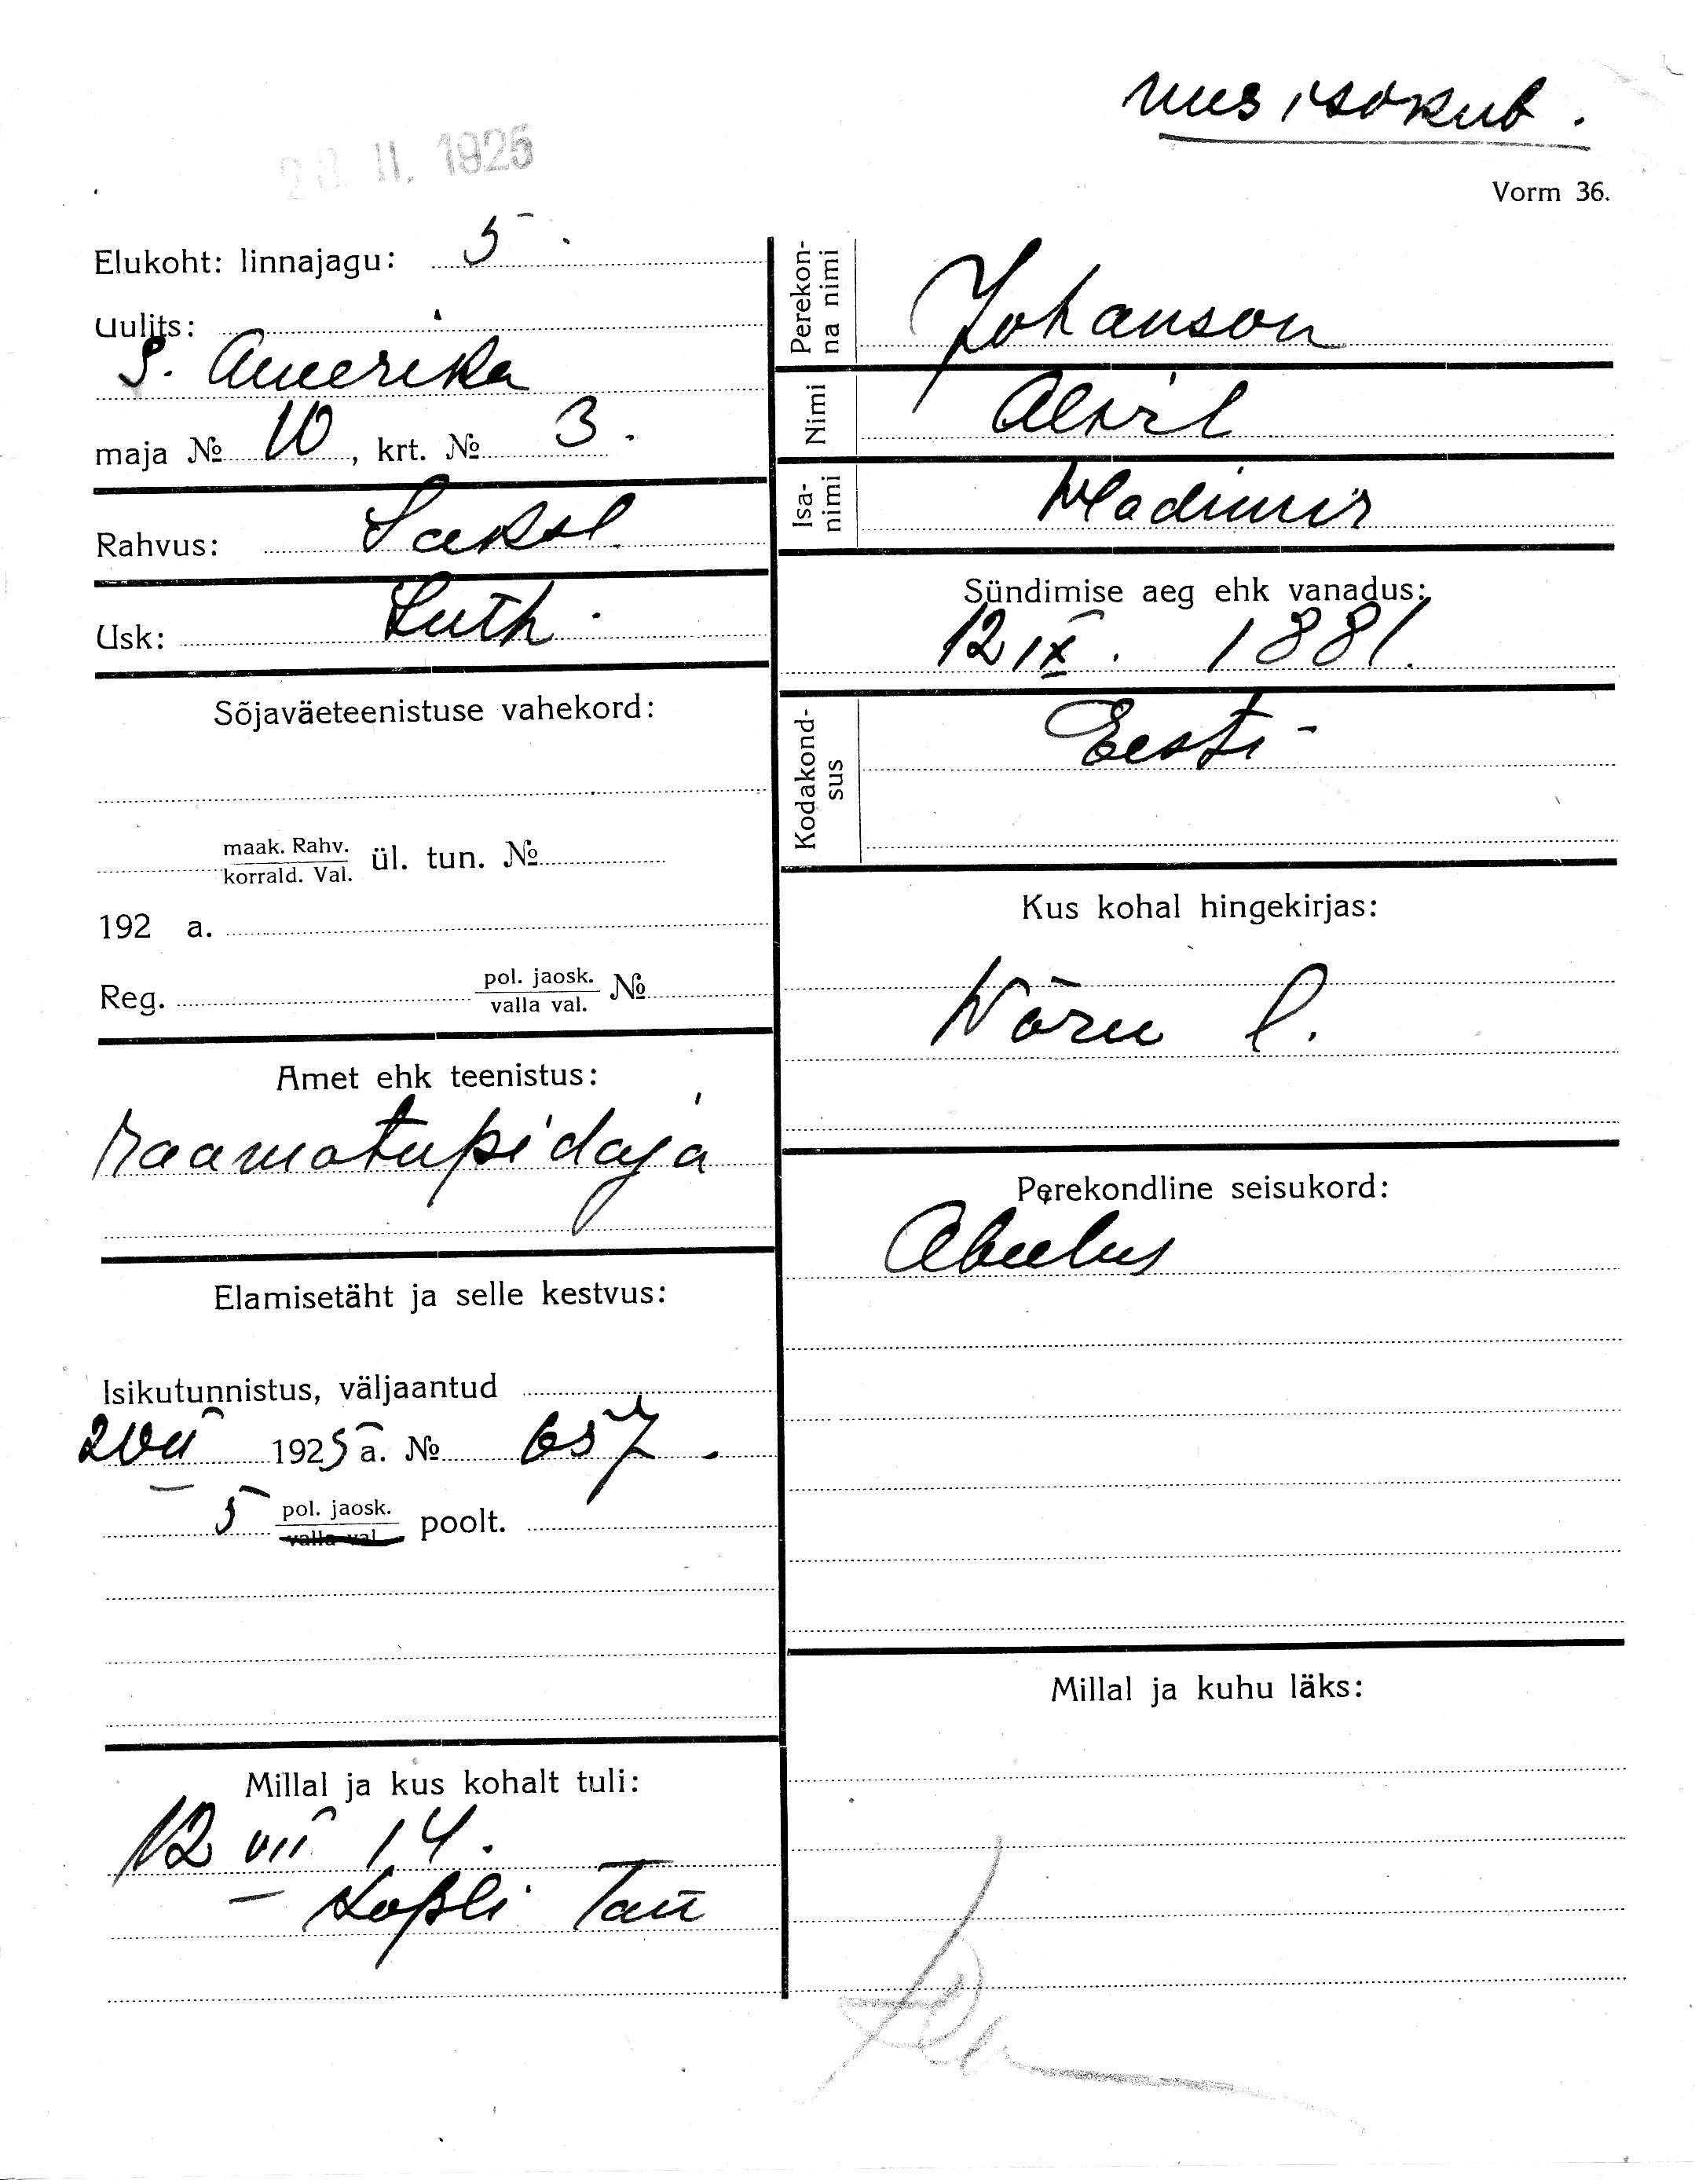 uus isokut.
28. II. 1925
Vorm 36.
Elukoht: linnajagu: 5.
Uulits:
S. Ameerika
maja № 10, krt. № 3.
Rahvus: Saksl.
Usk: Luth.
Sõjaväeteenistuse vahekord:
maak. Rahv.
korrald. Val. ül. tun. №
192 a.
Reg. pol. jaosk.
valla val. №
Amet ehk teenistus:
raamatupidaja
Elamisetäht ja selle kestvus:
Isikutunnistus, väljaantud
1925 a. № 657.
5 pol. jaosk.
valla val. poolt.
Millal ja kus kohalt tuli:
12 VII 14.
- Kopli Tän
Perekon-
na nimi Johanson
Nimi
Isa-
nimi Wladimir
Sündimise aeg ehk vanadus:
12 IX. 1881.
Kodakond-
sus Eesti -
Kus kohal hingekirjas:
Wõru l.
Perekondline seisukord:
Abielus
Millal ja kuhu läks: